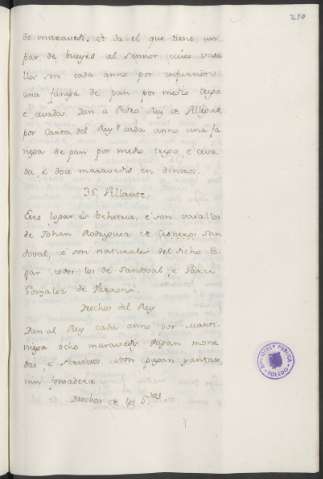 230
de maravedi, et da el que tiene un
par de bueyes al sennor cuios vasa
llos son cada anno por infurcion
una fanega de pan por medio trigo
e cevada. Dan a Pedro Ruy de Villegas
por Carta del Rey cada anno una fa
nega de pan por medio trigo, e ceva
da, e doce maravedis en dineros.
Villante
Este logar es behetria, e son vasallos
de Johan Rodriguez de Cisneros, San
doval, e son naturales del dicho lo
gar todos los de Sandoval, e Pedro
Gonzalez de
Derechos del Rey
Dan al Rey cada anno por marti
niega ocho maravedis. Pagan mone
das e servicios. Non pagan yantar,
nin fonsadera.
Derechos de los S.res
BIBLIOTECA PUBLICA
TOLEDO